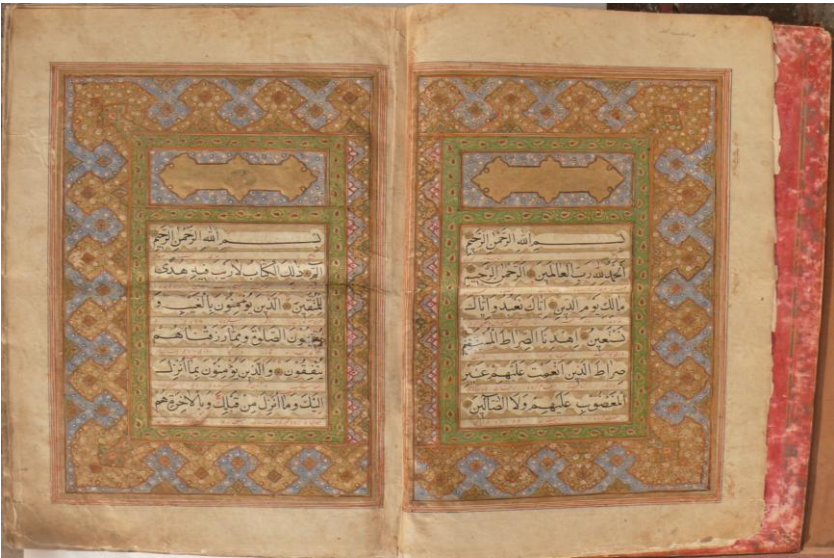 بسم الله الرحمن الرحيم
الحمد لله رب العالمين الرحمن الرحيم
مالك يوم الدين اياك نعبد واياك
نستعين اهدنا الصراط المستقيم
صراط الذين انعمت عليهم غير
المغضوب عليهم ولا الضالين
بسم الله الرحمن الرحيم
الم ذلك الكتاب لا ريب فيه هدى
للمتقين الذين يؤمنون بالغيب و
يقيمون الصلوة ومما رزقناهم
ينفقون والذين يؤمنون بما انزل
اليك وما انزل من قبلك وبالاخرة هم